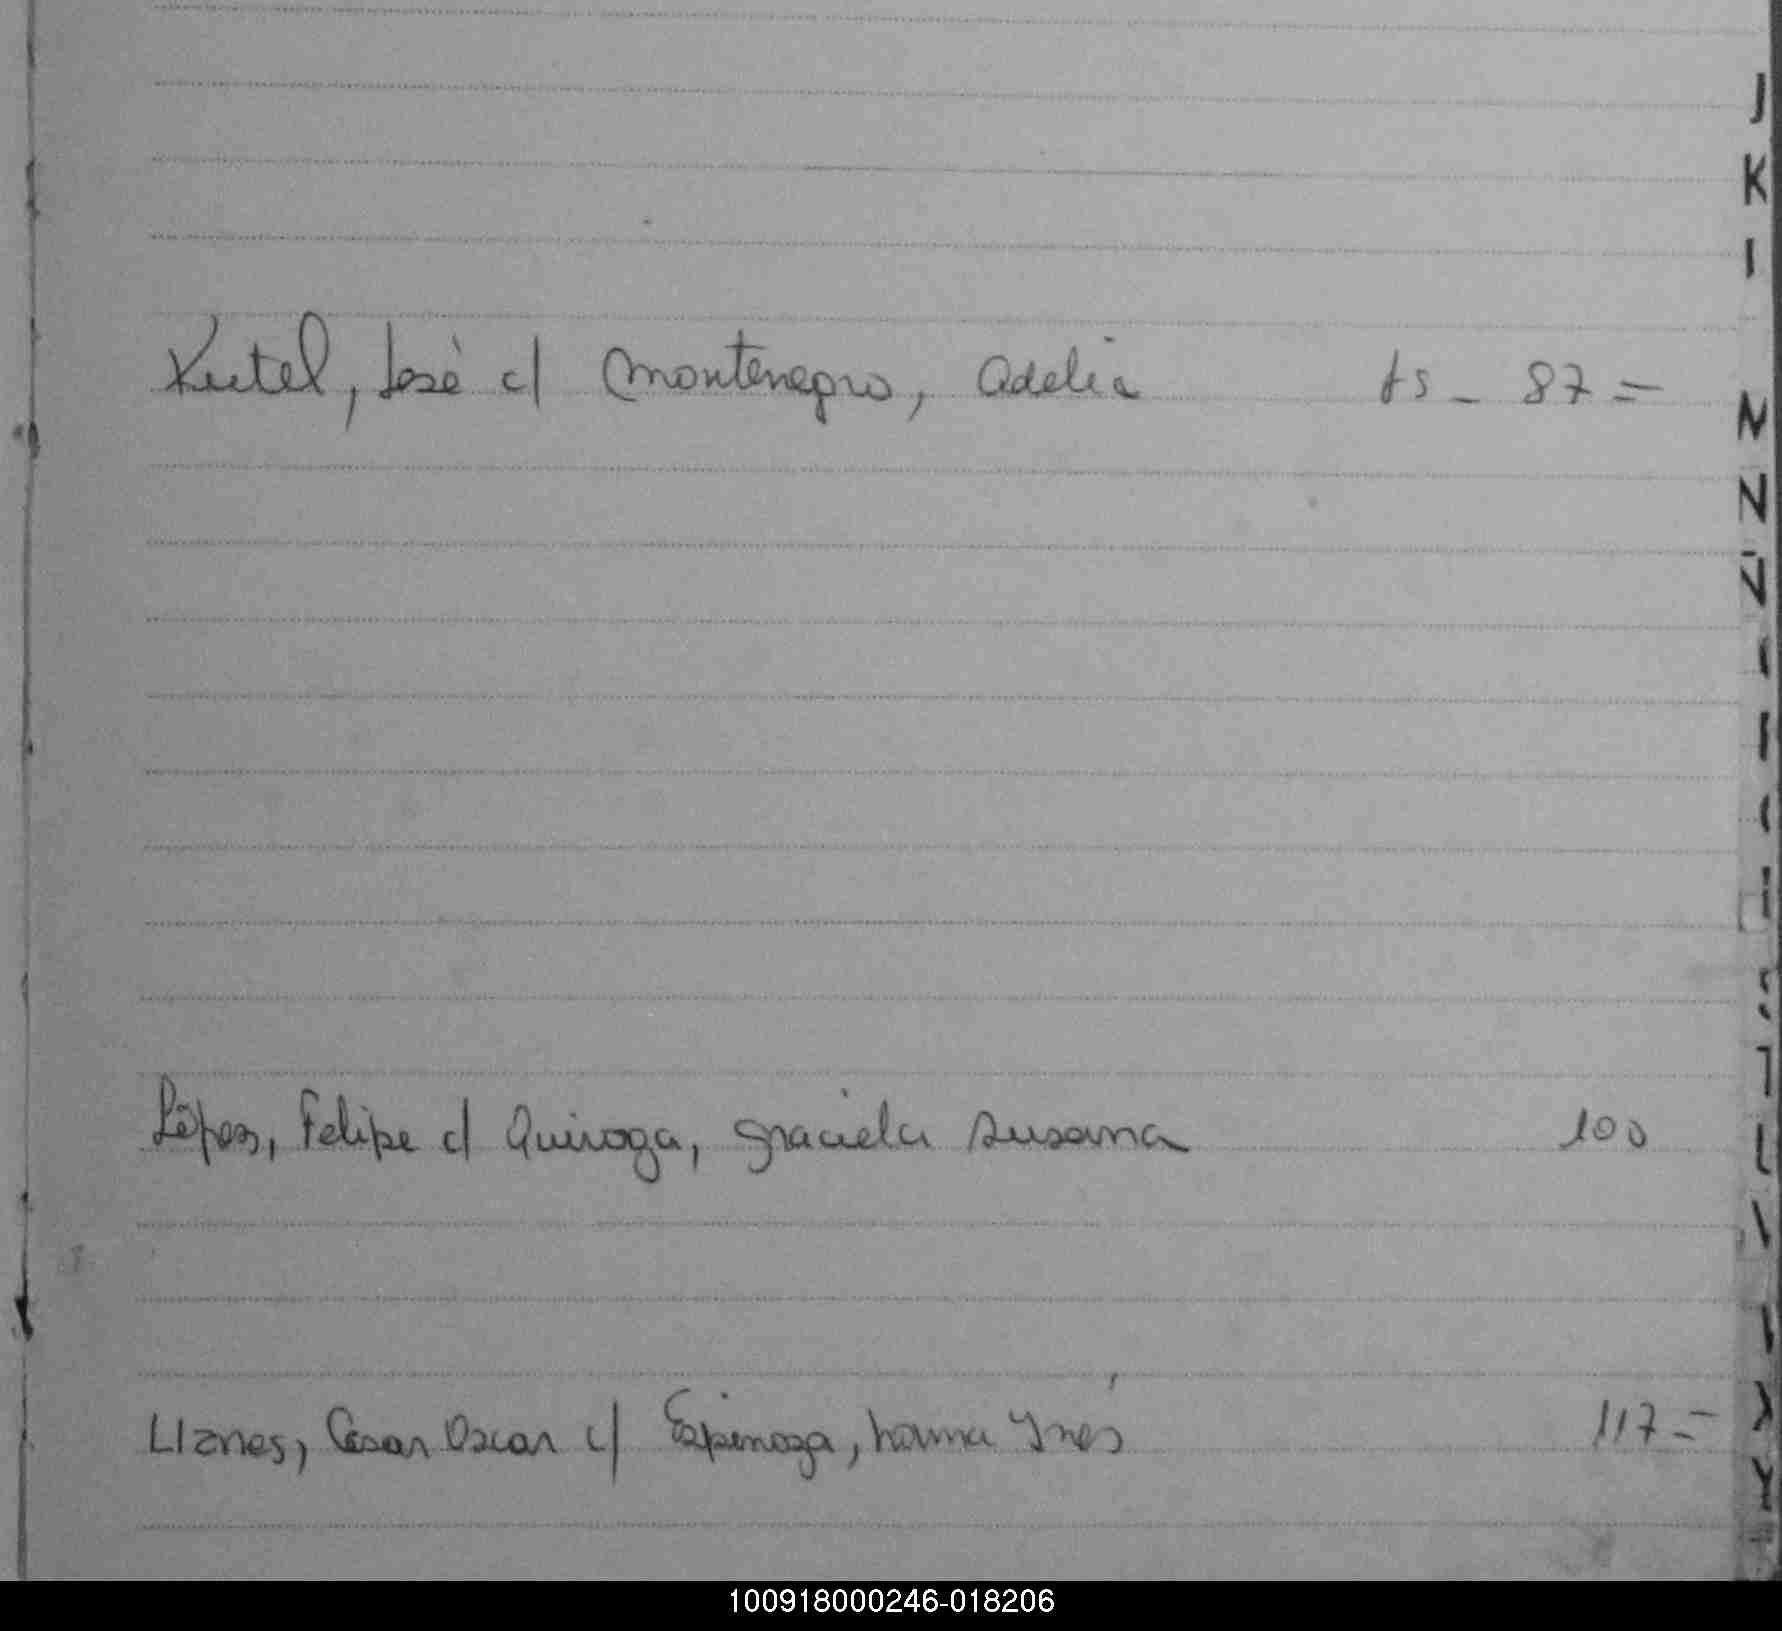 J
K
Kutel, José c/ Montenegro, Adelia fs - 87 =
López, Felipe c/ Quiroga, Graciela Susana 100
Llanes, Cesar Oscar c/ Espinoza, Norma Ynés 117 =
100918000246-018206